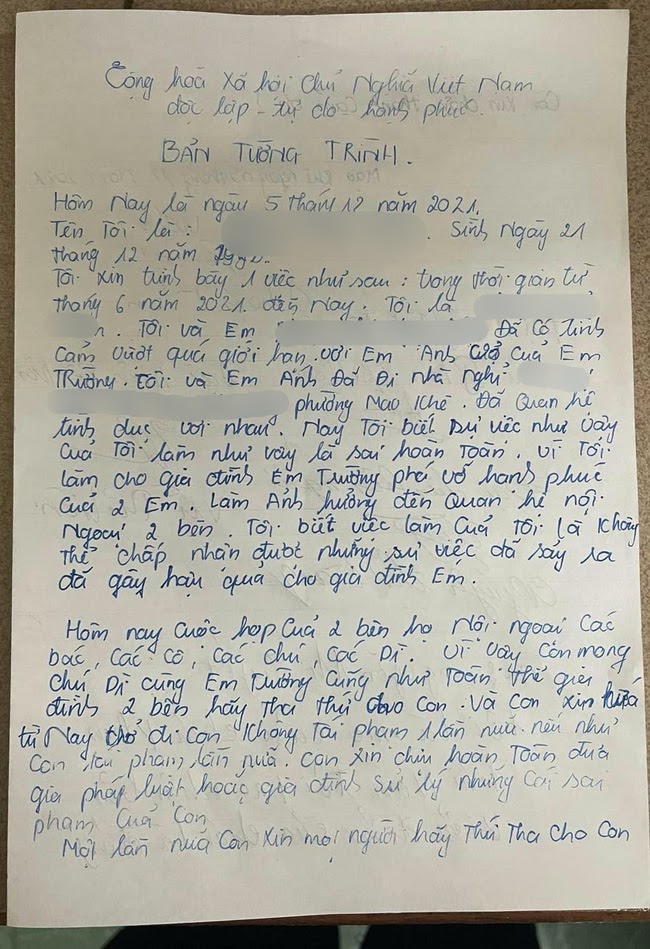 Cộng hoà Xã hội Chủ Nghĩa Việt Nam
độc lập - tự do hạnh phúc.
BẢN TƯỜNG TRÌNH.
Hôm Nay là ngày 5 tháng 12 năm 2021.
Tên Tôi là : Sinh Ngày 21
tháng 12 năm
Tôi xin trình bày 1 việc như sau : trong thời gian từ
tháng 6 năm 2021. đến Nay. Tôi là
Tôi và Em Đã Có tình
Cảm vượt quá giới hạn với Em Ánh vợ của Em
Trường. Tôi và Em Ánh Đã Đi nhà Nghỉ
phường Mạo Khê. Đã Quan hệ
tình dục với nhau. Nay Tôi biết sự việc như vậy
Của Tôi làm như vậy là sai hoàn Toàn. vì Tôi
làm cho gia đình Em Trường phá vỡ hạnh phúc
Của 2 Em. Làm Ảnh hưởng đến Quan hệ nội
Ngoại 2 bên. Tôi biết việc làm Của Tôi là Không
thể chấp nhận được nhưng sự việc đã sảy ra
đã gây hậu quả cho gia đình Em.
Hôm nay Cuộc họp Của 2 bên họ Nội ngoại Các
bác, Các Cô, Các chú, Các Dì. Vì vậy Con mong
chú Dì cùng Em Trường Cũng như Toàn thể gia
đình 2 bên hãy Tha thứ cho Con. Và Con xin hứa
từ Nay chở đi Con Không Tái phạm 1 lần nữa. nếu như
Con tái phạm lần nữa. Con xin chịu hoàn Toàn đưa
gia pháp luật hoặc gia đình sử lý những Cái sai
phạm Của Con
Một lần nữa Con Xin mọi người hãy Thứ Tha cho Con